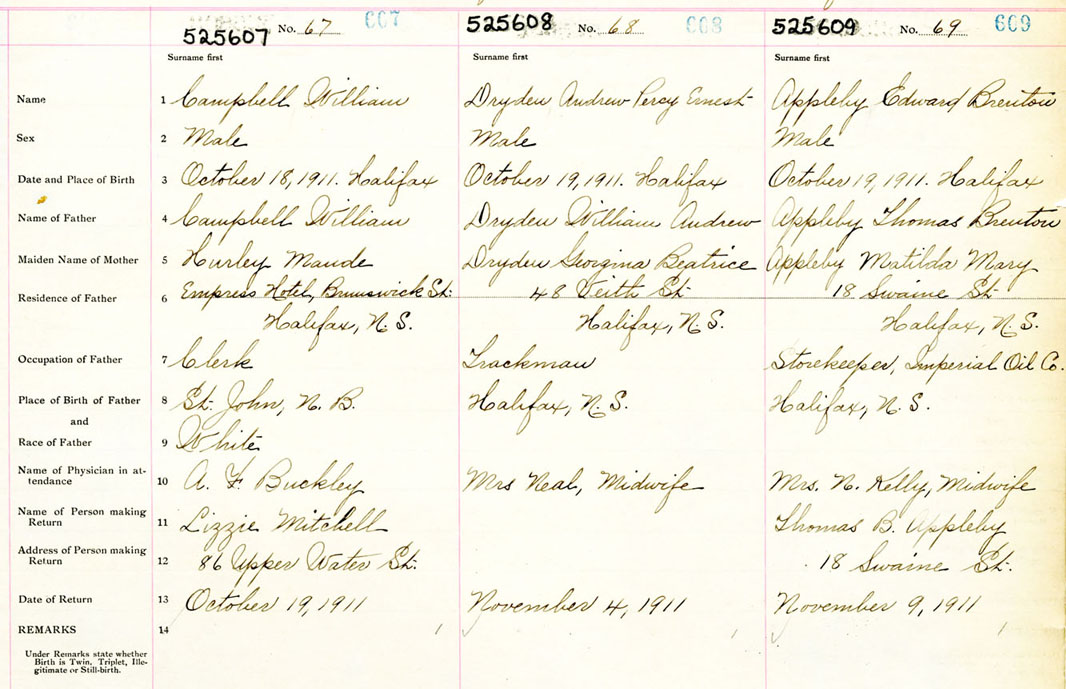 525607 No. 67 607 525608 No. 68 608 525609 No. 69 609
Surname first Surname first Surname first
Name 1 Campbell William Dryden Andrew Percy Ernest Appleby Edward Brenton
Sex 2 Male Male Male
Date and Place of Birth 3 October 18, 1911. Halifax October 19, 1911. Halifax October 19, 1911. Halifax
Name of Father 4 Campbell William Dryden William Andrew Appleby Thomas Brenton
Maiden Name of Mother 5 Hurley Maude Dryden Georgina Beatrice Appleby Matilda Mary
Residence of Father 6 Empress Hotel, Brunswick St: 48 Veith St. 18 Swaine St.
Halifax, N. S. Halifax, N. S. Halifax, N. S.
Occupation of Father 7 Clerk Trackman Storekeeper, Imperial Oil Co.
Place of Birth of Father 8 St. John, N. B. Halifax, N. S. Halifax, N. S.
and
Race of Father 9 White
Name of Physician in at-
tendance 10 A. F. Buckley Mrs Neal, Midwife Mrs. N. Kelly, Midwife
Name of Person making
Return 11 Lizzie Mitchell Thomas B. Appleby
Address of Person making
Return 12 86 Upper Water St. 18 Swaine St.
Date of Return 13 October 19, 1911 November 4, 1911 November 9, 1911
REMARKS 14
Under Remarks state whether
Birth is Twin, Triplet, Ille-
gitimate or Still-birth.